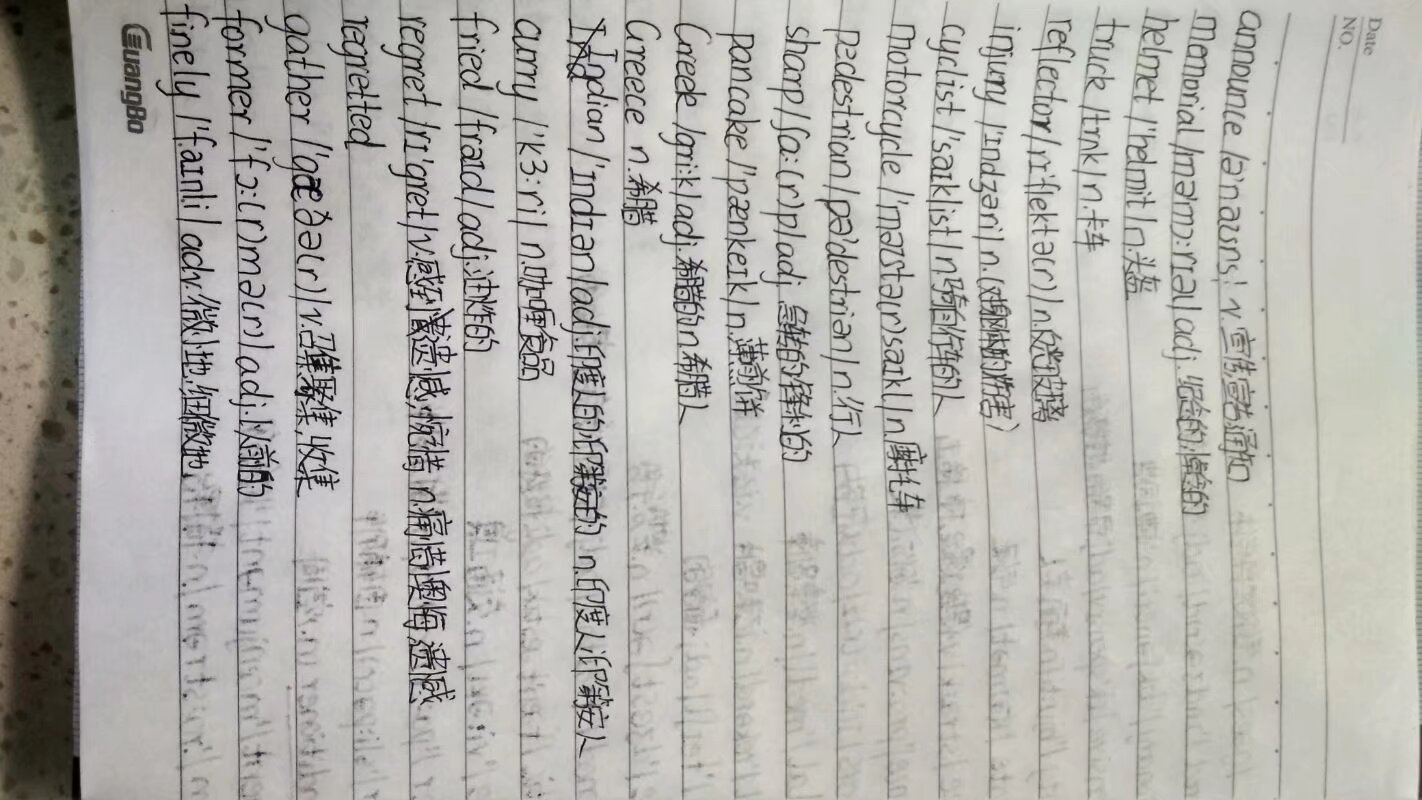 Date
NO.
announce /ə'naʊns/ v 宣布,宣告,通知
memorial /məmɔ:rɪəl/ adj. 纪念的,悼念的
helmet /'helmit/ n.头盔
truck /trʌk/ n.卡车
reflector /rɪ'flektə(r)/ n.反光玻璃
injury /'ɪndʒəri/ n.(对躯体的)伤害)
cyclist /'saɪklɪst/ n.骑自行车的人
motorcycle /'məʊstə(r)saɪkl/ n.摩托车
pedestrian /pə'destriən/ n.行人
sharp /ʃɑ:(r)p/ adj 急转的,锋利的
pancake /'pænkeɪk/ n.薄煎饼
Greek /gri:k/ adj.希腊的 n.希腊人
Greece n.希腊
Indian /'ɪndɪən/ adj.印度人的,印第安的 n.印度人,印第安人
curry /'kɜ:ri/ n.咖喱食品
fried /fraɪd/ adj.油炸的
regret /rɪ'gret/ v.感到遗憾,惋惜 n.痛惜,懊悔,遗憾
regretted
gather /'gæðə(r)/ v.召集,聚集,收集
former /'fɔ:(r)mə(r)/ adj.以前的
finely /'faɪnli/ adv.微小地,细微地
GuangBo